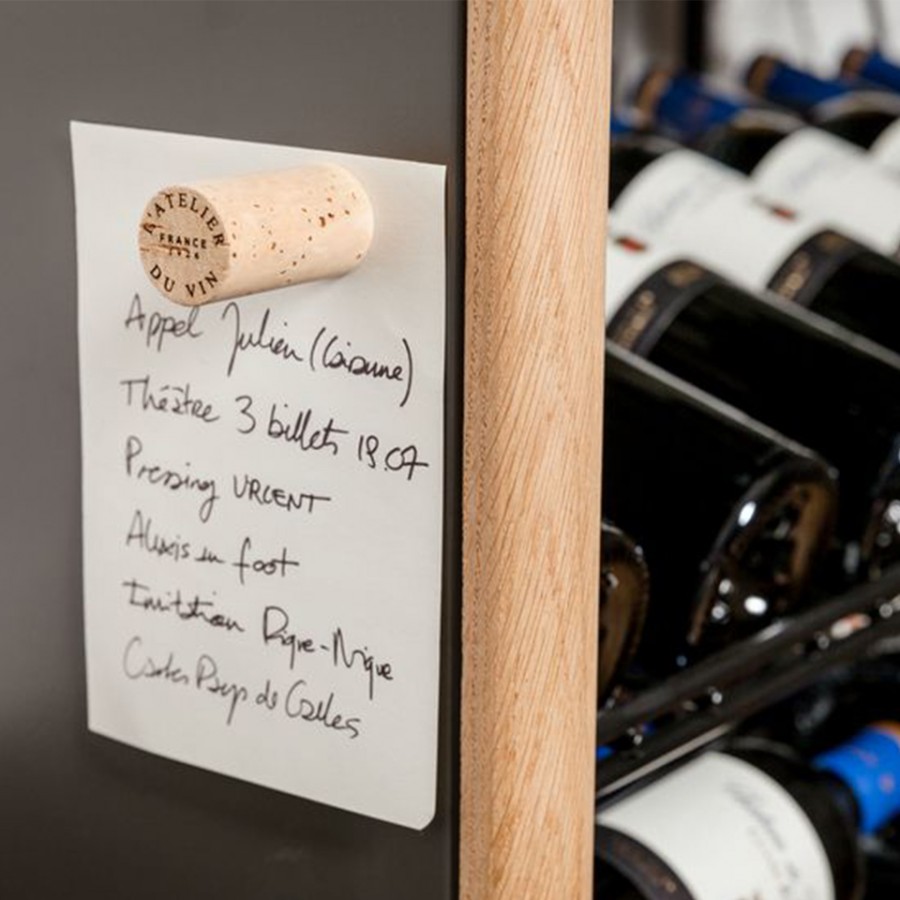 L'ATELIER
FRANCE
1926
DU VIN
Appel Julien (Caisune)
Théâtre 3 billets 19.07
Pressing URGENT
Alexis en foot
Invitation Pique-Nique
Cartes Pays de Galles